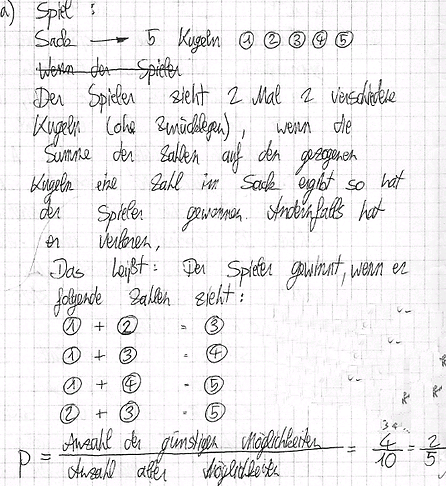 a) Spiel :
Sack → 5 Kugeln ① ② ③ ④ ⑤
Wenn der Spieler
Der Spieler zieht 2 Mal 2 verschiedene
Kugeln (ohe zurücklegen), wenn die
Summe der Zahlen auf den gezogenen
Kugeln eine Zahl im Sack ergibt so hat
der Spieler gewonnen. Andernfalls hat
er verloren,
Das heißt: Der Spieler gewinnt, wenn er
folgende Zahlen zieht :
① + ② = ③
① + ③ = ④
① + ④ = ⑤
② + ③ = ⑤
P = Anzahl der günstigen Möglichkeiten / Anzahl aller Möglichkeiten = 4/10 = 2/5